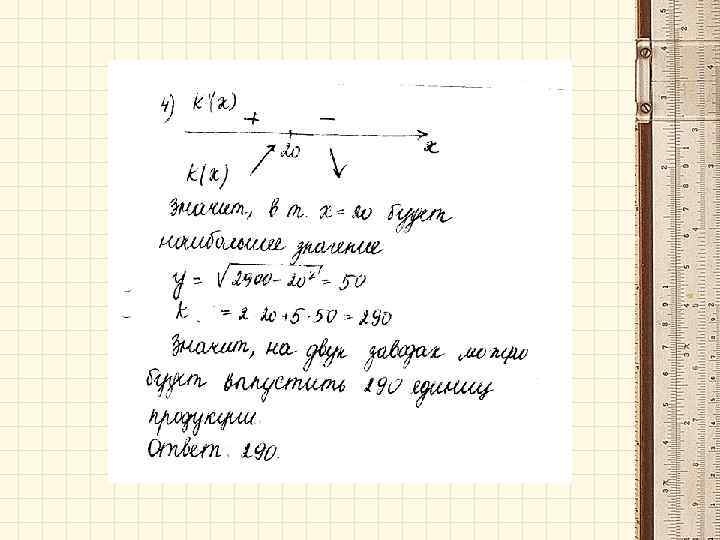 4) K'(x)
+ −
20 x
K(x)
Значит, в т. x = 20 будет
наибольшее значение
y = √2900 - 20² = 50
K = 2 20 + 5 · 50 = 290
Значит, на двух заводах можно
будет выпустить 290 единиц
продукции.
Ответ. 290.